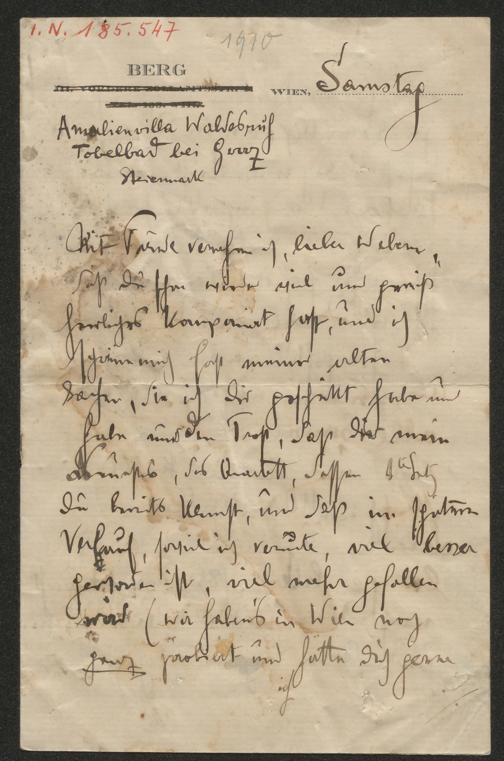 I. N. 185.547
1910
BERG
WIEN, Samstag
Amalienvilla Waldesruh
Tobelbad bei Graz
Steiermark
Mit Freude vernehm ich, lieber Webern,
daß du schon wieder viel und gewiß
herrliches komponiert hast, und ich
schäme mich fast meiner alten
Sachen, die ich dir geschickt habe und
habe nur den Trost, daß dir mein
Neuestes, das Quartett, dessen 1ten Satz
du bereits kennst, und das im spätern
Verlauf, soviel ich vermute, viel besser
geworden ist, viel mehr gefallen
wird (wir haben's in Wien noch
ganz probiert und hätte dich gerne
ich